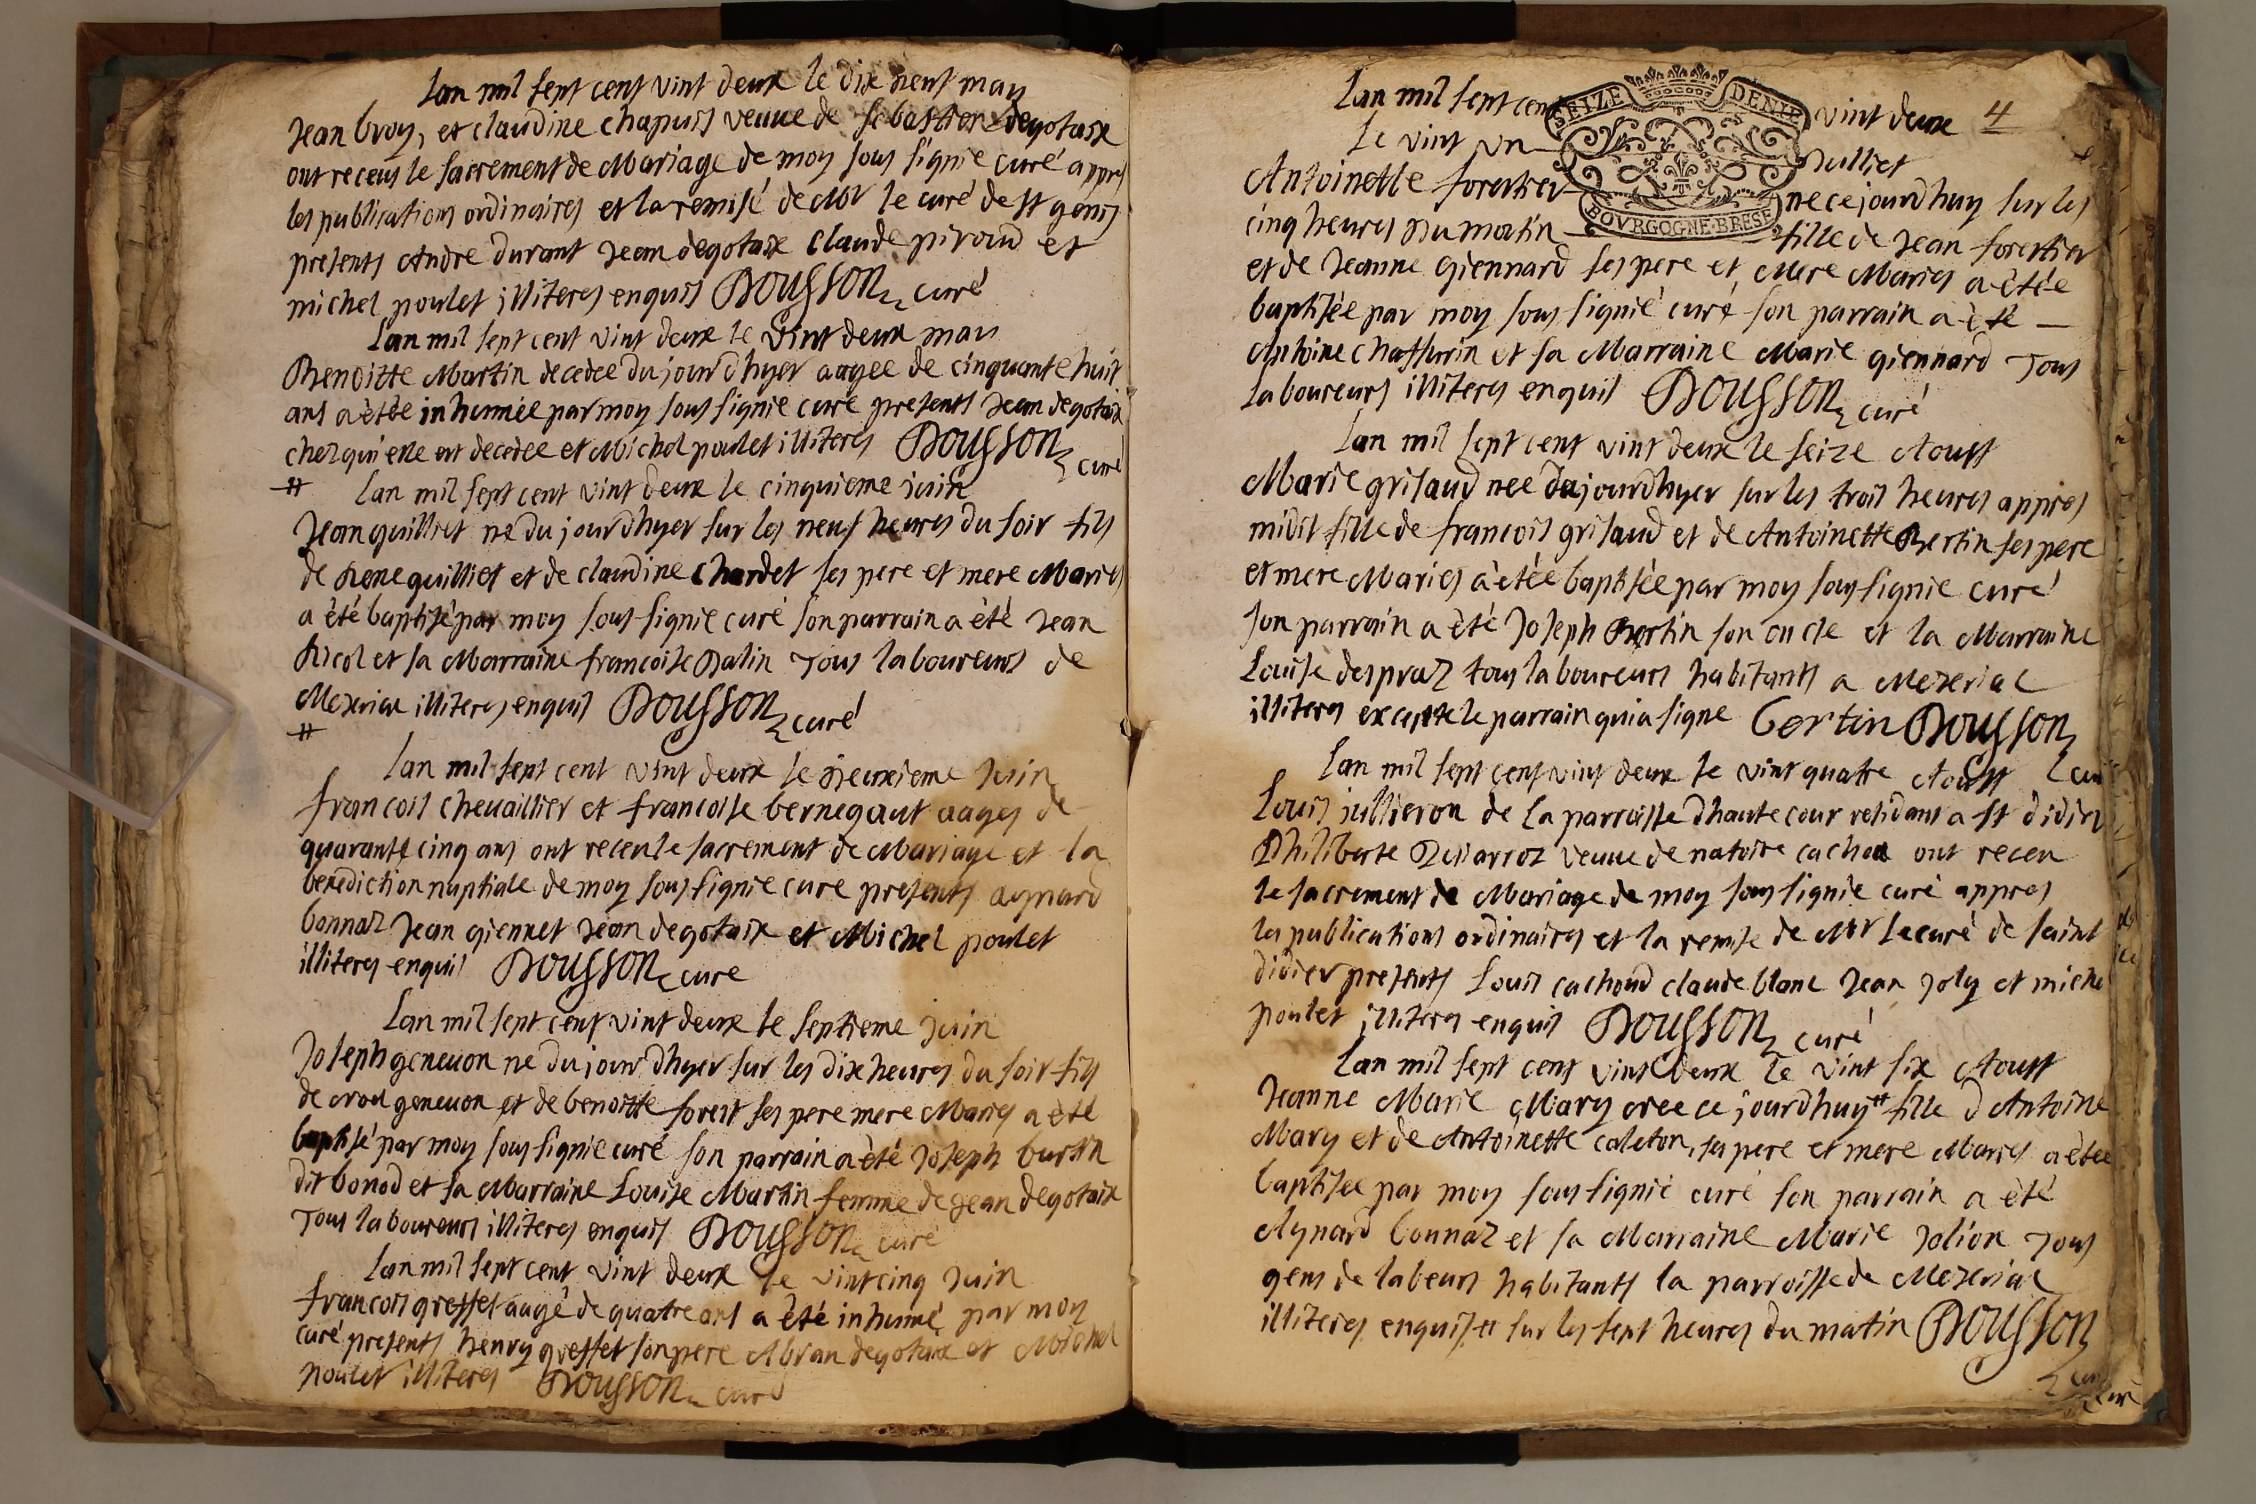 Lan mil sept cent vint deux le dix neuf may
Jean broy, et claudine chapuis veuue de sebastien degotaix
ont receus le sacrement de Mariage de moy sous signie curé appres
les publications ordinaires et la remise de Mr le curé de st genis
presents Andre durant Jean degotaix Claude piroud et
michel poulet illiteres enquis DOUSSON curé
Lan mil sept cent vint deux le vint deux may
Benoitte Martin decedee dujourdhyer aagee de cinquante huit
ans a étée inhumée par moy sous signie curé presents Jean degotaix
chez qui elle est decedee et Michel poulet illiteres DOUSSON curé
# Lan mil sept cent vint deux le cinquieme juin
Jean guilliet ne du jourdhyer sur les neuf heures du soir fils
de Rene guilliet et de claudine Chardet ses pere et mere Maries
a été baptisé par moy sous signie curé son parrain a été Jean
Nicol et sa Marraine francoise Dalin Tous laboureurs de
Mezeriax illiteres enquis DOUSSON curé
#
Lan mil sept cent vint deux le deuxieme Juin
francois cheuaillier et francoise bernegaut aages de
quarante cinq ans ont receu le sacrement de Mariage et la
benediction nuptiale de moy sous signie cure presents aynard
bonnaz Jean giennet Jean degotaix et Michel poulet
illiteres enquis DOUSSON cure
Lan mil sept cent vint deux le septieme Juin
Joseph geneuon ne du jourdhyer sur les dix heures du soir fils
de geneuon et de benoitte forest ses pere mere Maries a été
baptisé par moy sous signie curé son parrain a été Joseph burtin
dit bonod et sa Marraine Louise Martin femme de Jean degotaix
Tous laboureurs illiteres enquis DOUSSON curé
Lan mil sept cent vint deux le vint cinq Juin
francois greffet aagé de quatre ans a été inhumé par moy
curé presents henry greffet son pere Abran degotaix et Michel
poulet illiteres DOUSSON curé
Lan mil sept cent vint deux 4
SEIZE DENIE
BOVRGOGNE·BRESE
Le vint un Julliet
Antoinette forestier ne ce jourdhuy sur les
cinq heures du matin fille de Jean forestier
et de Jeanne giennard ses pere et Mere Maries a étée
baptisée par moy sous signié curé son parrain a été
Antoine chassurin et sa Marraine Marie giennard Tous
laboureurs illiteres enquis DOUSSON curé
Lan mil sept cent vint deux le seize Aoust
Marie grisaud nee dujourdhyer sur les trois heures appres
midit fille de francois grisaud et de Antoinette Bertin ses pere
et mere Maries a étée baptisée par moy sous signie curé
son parrain a été Joseph Bertin son oncle et la Marraine
Louise despraz tous laboureurs habitants a Mezeriac
illiteres excepte le parrain qui a signe Bertin DOUSSON
cu
Lan mil sept cent vint deux le vint quatre Aoust
Louis jullieron de la parroisse dhautecour residant a st didier
Philiberte veuue de cachod ont receu
le sacrement de Mariage de moy sous signie curé appres
les publications ordinaires et la remise de Mr le curé de saint
didier presents Louis cachoud claude blanc Jean Joly et miche
poulet illiteres enquis DOUSSON curé
Lan mil sept cent vint deux le vint six Aoust
Jeanne Marie Mary nee ce jourdhuy # fille d Antoine
Mary et de Antoinette caleton, ses pere et mere Maries a étee
baptisée par moy sous signié curé son parrain a été
Aynard bonnaz et sa Marraine Marie Jolion Tous
gens de labeurs habitants la parroisse de Mezeriac
illiteres enquis # sur les sept heures du matin DOUSSON
curé